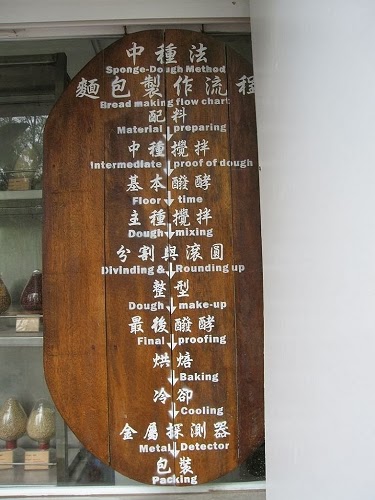 中種法
Sponge-Dough Method
麵包製作流程
Bread making flow chart
配料
Material preparing
中種攪拌
Intermediate proof of dough
基本醱酵
Floor time
主種攪拌
Dough mixing
分割與滾圓
Divinding & Rounding up
整型
Dough make-up
最後醱酵
Final proofing
烘焙
Baking
冷卻
Cooling
金屬探測器
Metal Detector
包裝
Packing